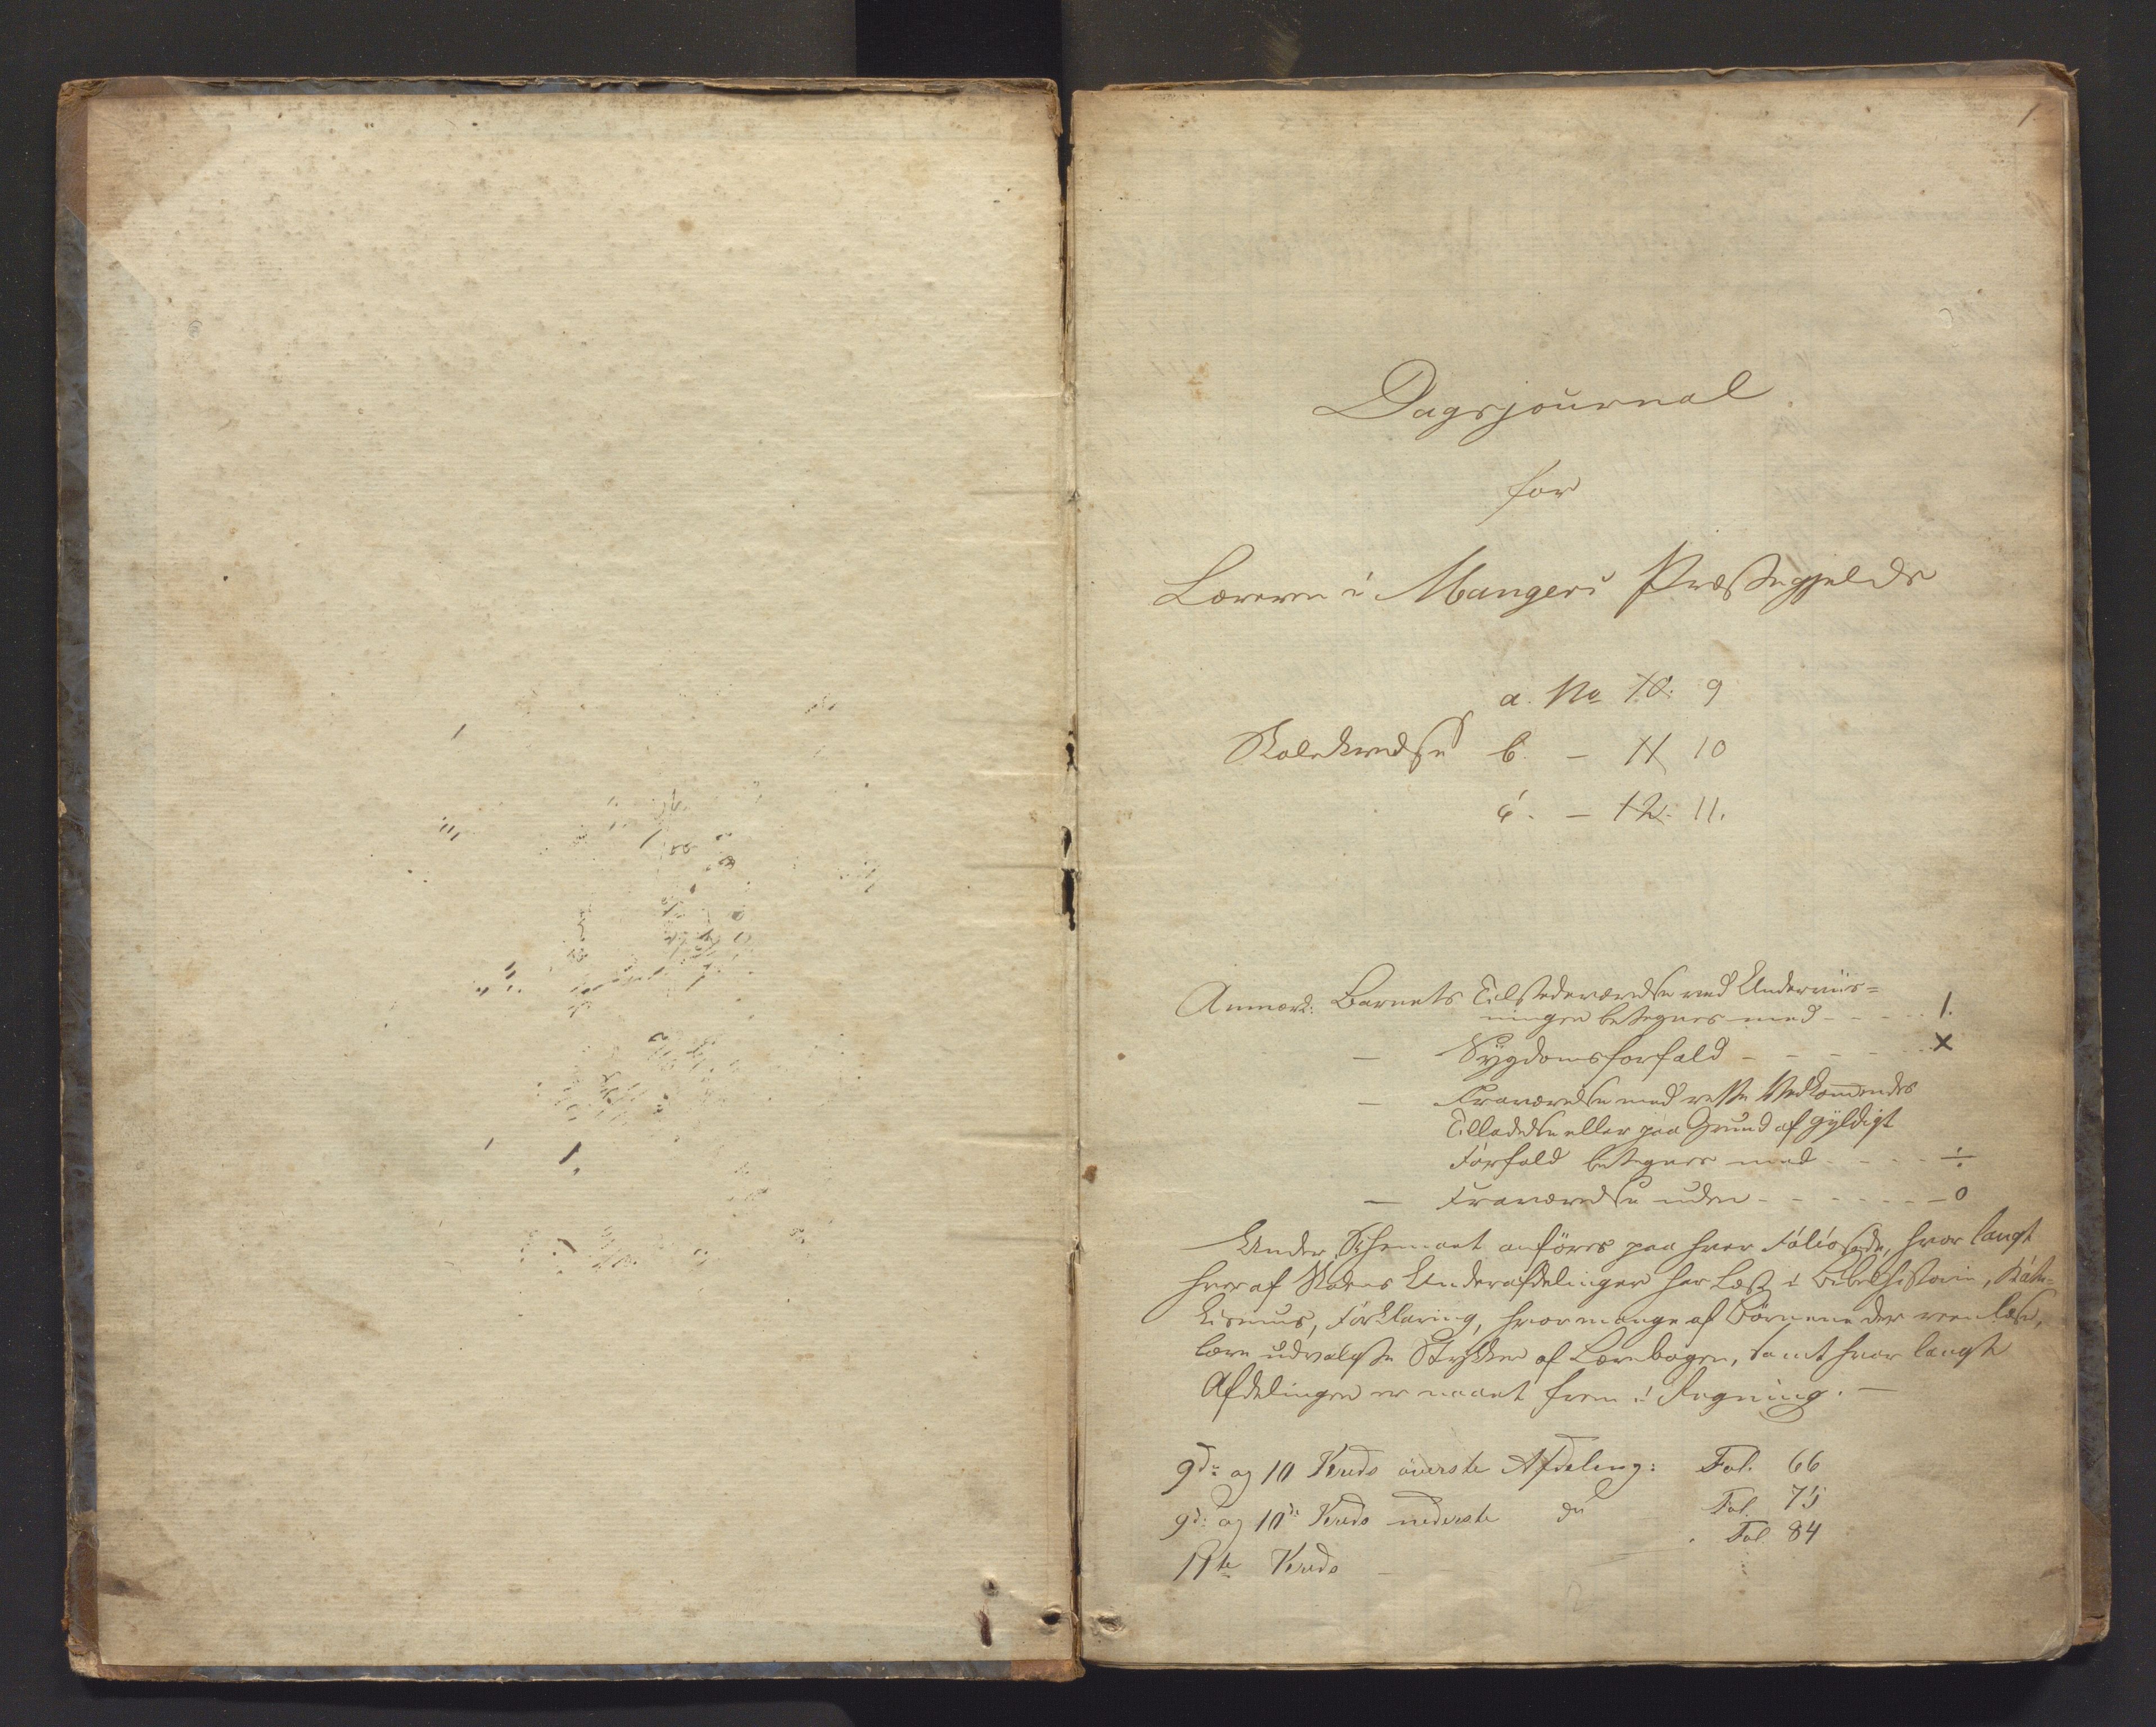 1
Dagsjournal
for
Læreren i Mangers Præstegjelds
a. No 10. 9
Skolekredse b. – 11 10
c. – 12. 11.
Anmærk: Barnets Tilstedeværelse ved Underviis=
ningen betegnes med - - - - - 1.
— Sygdomsforfald - - - - - - x
— Fraværelse med rette Vedkommendes
Tilladelse eller paa Grund af gyldigt
Forfald betegnes med - - - - ÷
— Fraværelse uden - - - - - - - 0
Under Schemaet anföres paa hver Folioside, hvor langt
hver af Skolens Underafdelinger har læst i Bibelhistorie, Kate-
kismus, Forklaring, hvormange af Börnene der reenlæse,
lære udvalgte Stykker af Læsebogen, samt hvor langt
Afdelingen er naaet frem i Regning. —
9de og 10 Kreds överste Afdeling: Fol. 66
9de og 10de Kreds nederste do Fol. 75
11te Kreds – Fol 84